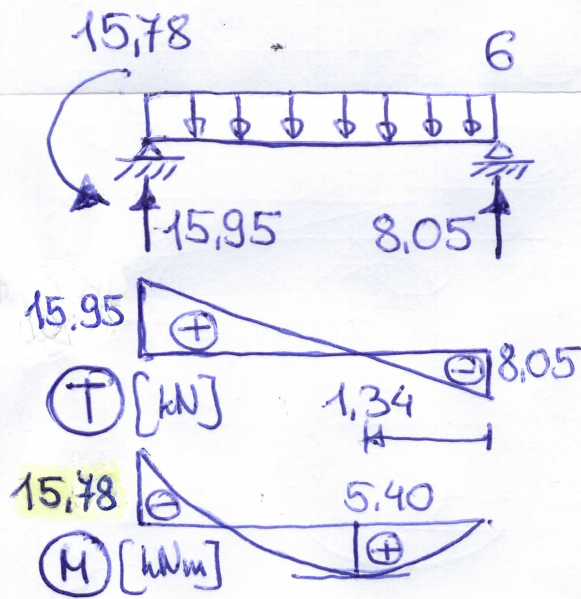 15,78
6
15,95 8,05
15.95 + - 8,05
T [kN] 1,34
15,78 - 5.40
M [kNm] +